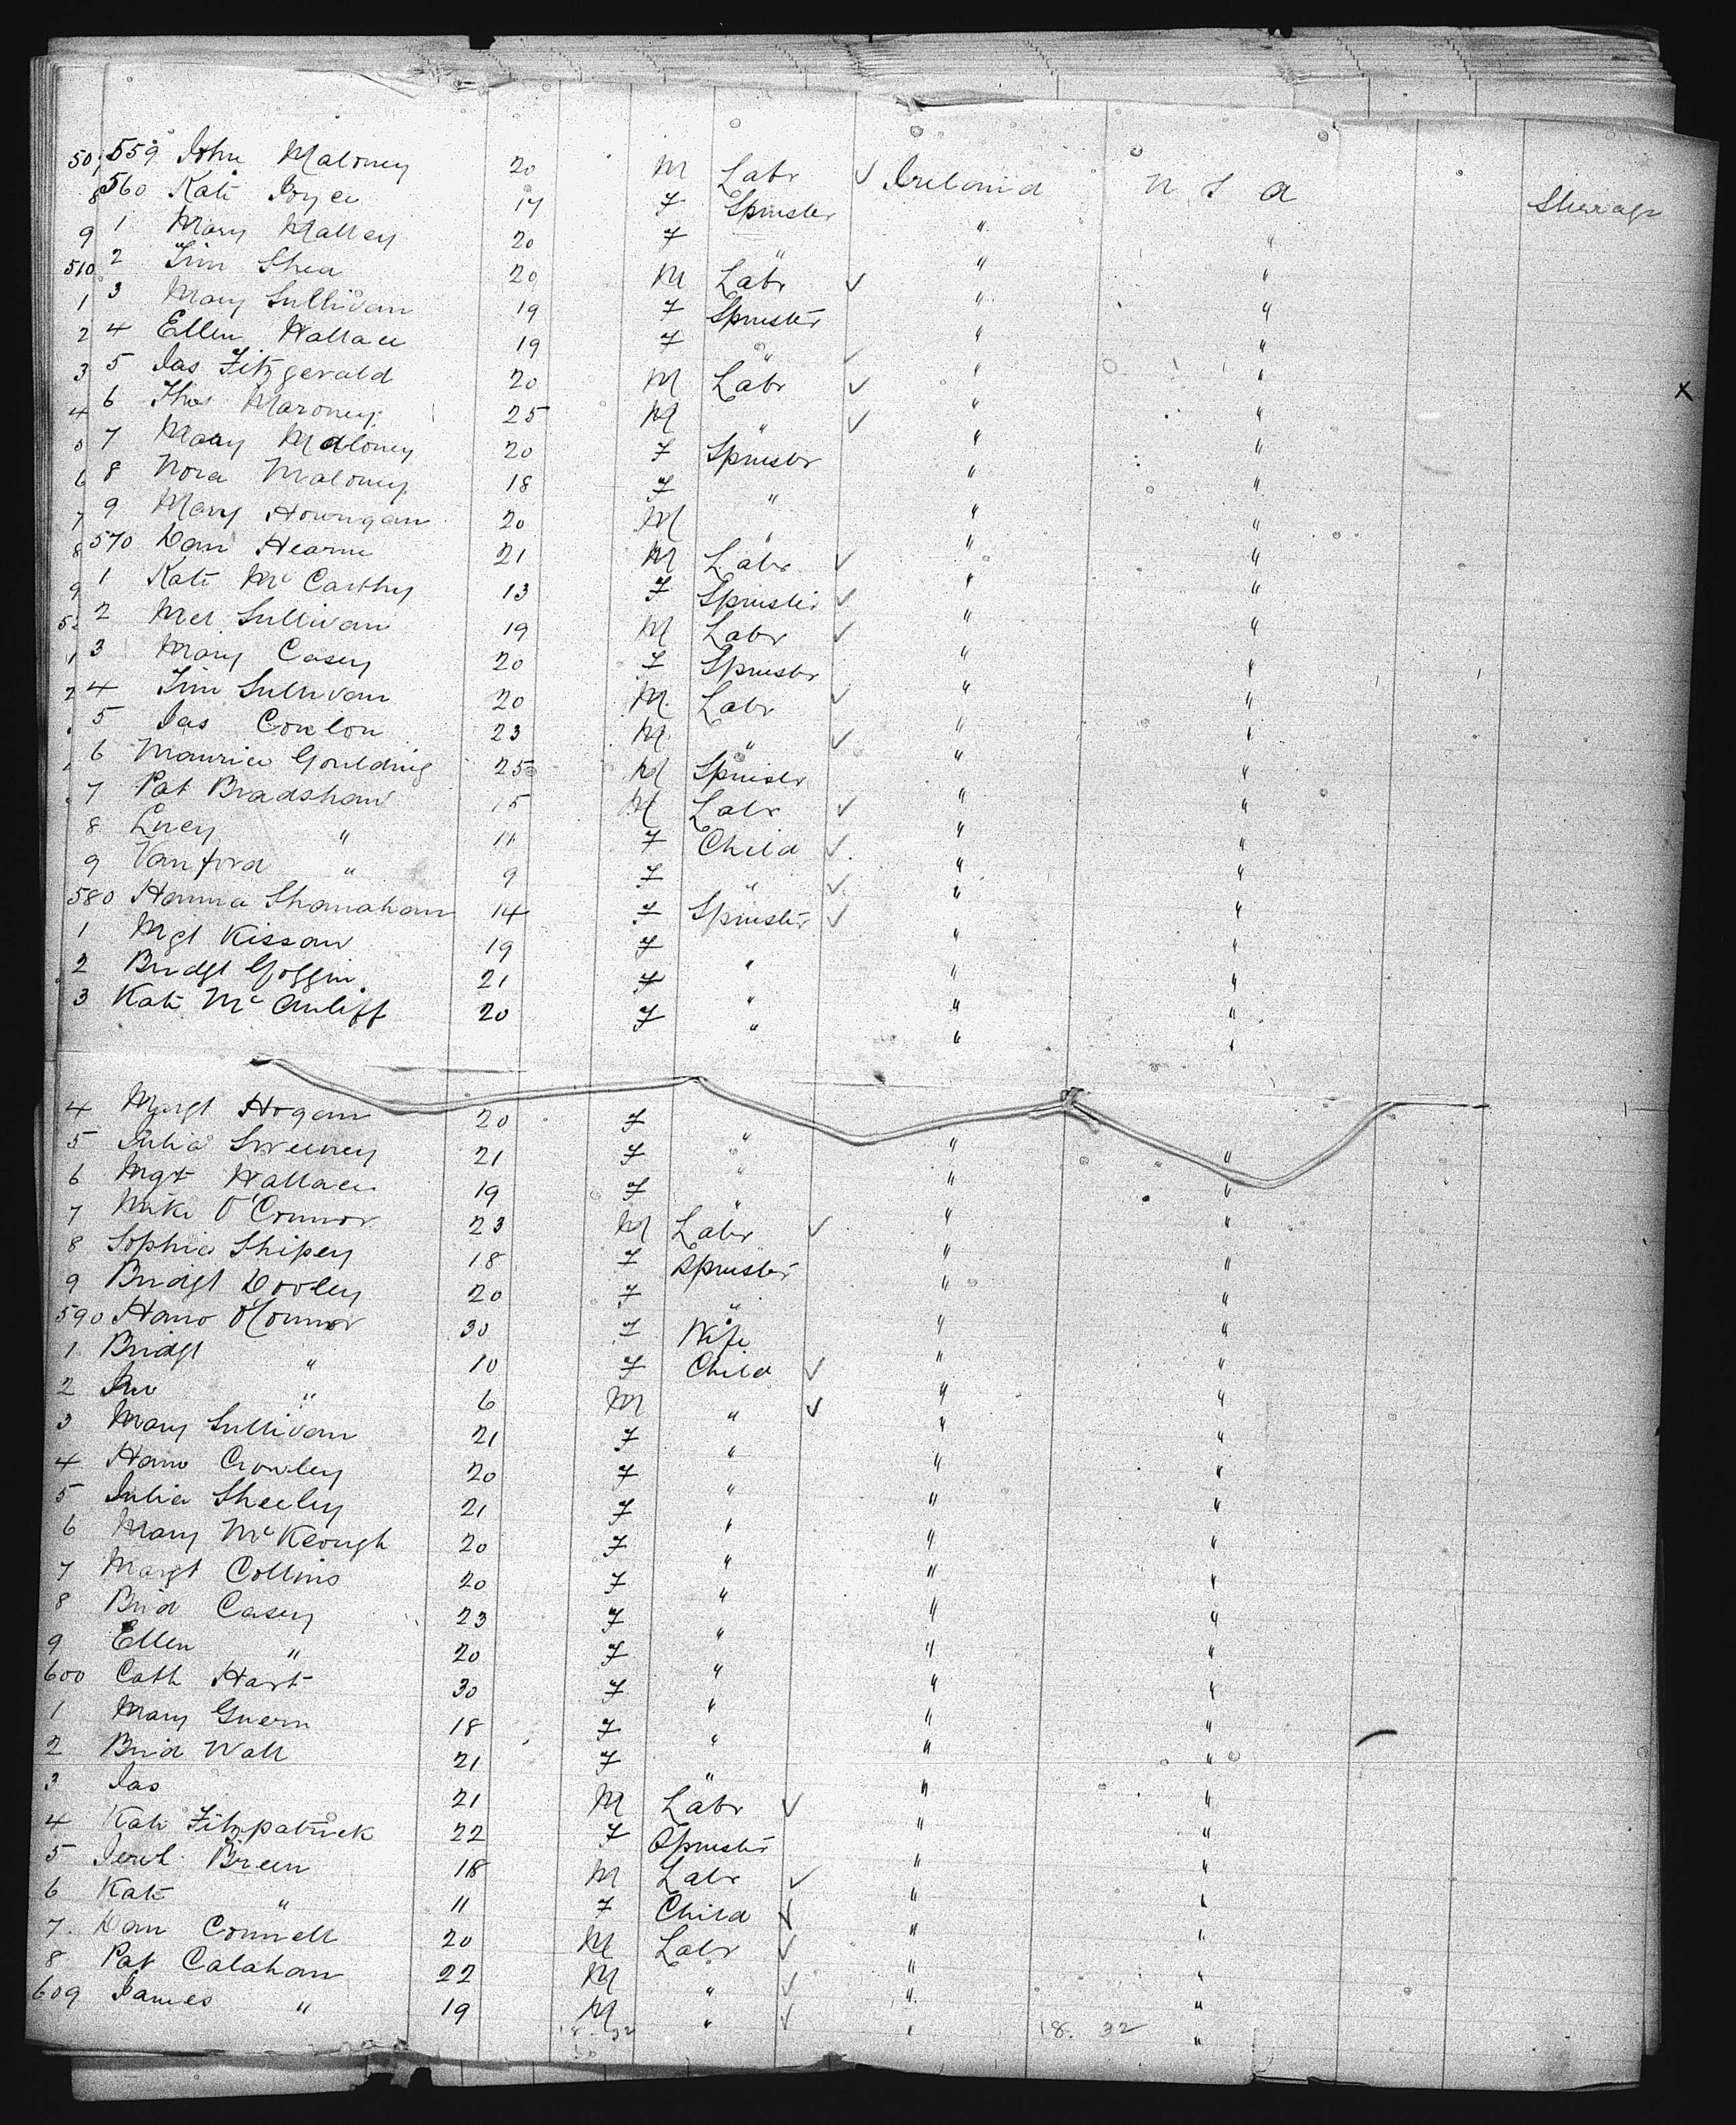 50 559 John Maloney 20 M Labr ✓ Ireland U S A Steerage
8 560 Kate Joyce 17 F Spinster " "
9 1 Mary Malley 20 F " " "
510 2 Tim Shea 20 M Labr ✓ " "
1 3 Mary Sullivan 19 F Spinster " "
2 4 Ellen Wallace 19 F " " "
3 5 Jas Fitzgerald 20 M Labr ✓ " "
4 6 Thos Maroney 25 M " ✓ " "
5 7 Mary Maloney 20 F Spinstr " "
6 8 Nora Maloney 18 F " " "
7 9 Mary 20 M " " "
8 570 Dan Hearne 21 M Labr ✓ " "
9 1 Kate McCarthy 13 F Spinster ✓ " "
52 2 Mcl Sullivan 19 M Labr ✓ " "
1 3 Mary Casey 20 F Spinstr " "
2 4 Tim Sullivan 20 M Labr ✓ " "
5 Jas Conlon 23 M " ✓ " "
6 Maurice Goulding 25 M Spinstr " "
7 Pat Bradshaw 15 M Labr ✓ " "
8 Lucy " 11 F Child ✓ " "
9 Vanford " 9 F " ✓ " "
580 Hanna Shanahan 14 F Spinster ✓ " "
1 Mgt Kissaw 19 F " " "
2 Bridgt Goggin 21 F " " "
3 Kate McAuliff 20 F " " "
4 Margt Hogan 20 F " " "
5 Julia Sweeney 21 F " " "
6 Mgt Wallace 19 F " " "
7 Mike O'Connor 23 M Labr ✓ " "
8 Sophia Shipey 18 F Spinster " "
9 Bridgt Dooley 20 F " " "
590 Hano O'Connor 30 F Wife " "
1 Bridgt " 10 F Child ✓ " "
2 Jno " 6 M " ✓ " "
3 Mary Sullivan 21 F " " "
4 Hano Crowley 20 F " " "
5 Julia Sheehy 21 F " " "
6 Mary McKeough 20 F " " "
7 Margt Collins 20 F " " "
8 Brid Casey 23 F " " "
9 Ellen " 20 F " " "
600 Cath Hart 30 F " " "
1 Mary Guern 18 F " " "
2 Brid Wall 21 F " " "
3 Jas 21 M Labr ✓ " "
4 Kate Fitzpatrick 22 F Spinster " "
5 Breen 18 M Labr ✓ " "
6 Kate " 11 F Child ✓ " "
7 Dan Connell 20 M Labr ✓ " "
8 Pat Calahan 22 M " ✓ " "
609 James " 19 M " ✓ " "
18 32 18. 32